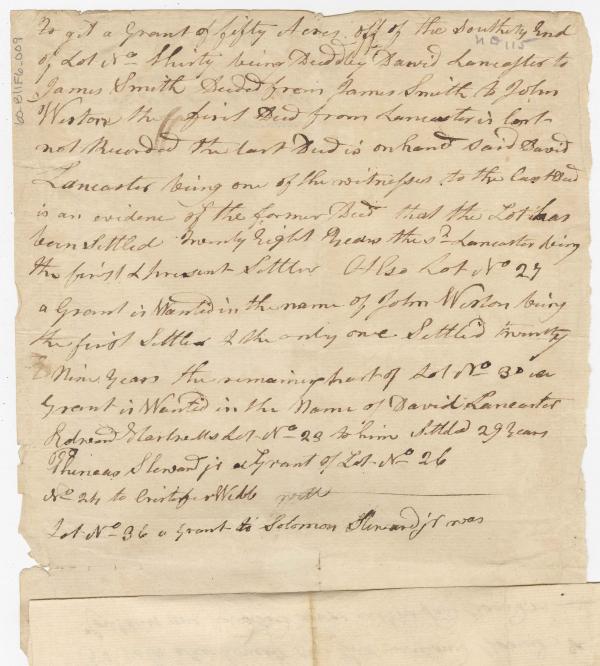 To git a Grant of fifty Acres off of the Southerly End
No 115
of Lot No Thirty being Deeded by David Lancaster to
James Smith Deeded from James Smith to John
Weston the first Deed from Lancaster is lost
not Recorded the last Deed is on hand said David
Lancaster being one of the witnesses to the Last Deed
is an evidence of the former Deed that the Lot has
been Settled Twenty Eight Years the sd Lancaster being
the first & present Settler Also Lot No 27
a Grant is Wanted in the name of John Weston being
the first Settler & the only one Settled twenty
Nine Years the remaining part of Lot No 30 a
Grant is Wanted in the Name of David Lancaster
Edward Lot No 23 to him Settled 29 Years
Phineas Steward jr a Grant of Lot No 26
No 24 to Cristifer Webb
Lot No 36 a Grant to Solomon Steward jr was
60-B11F6-009